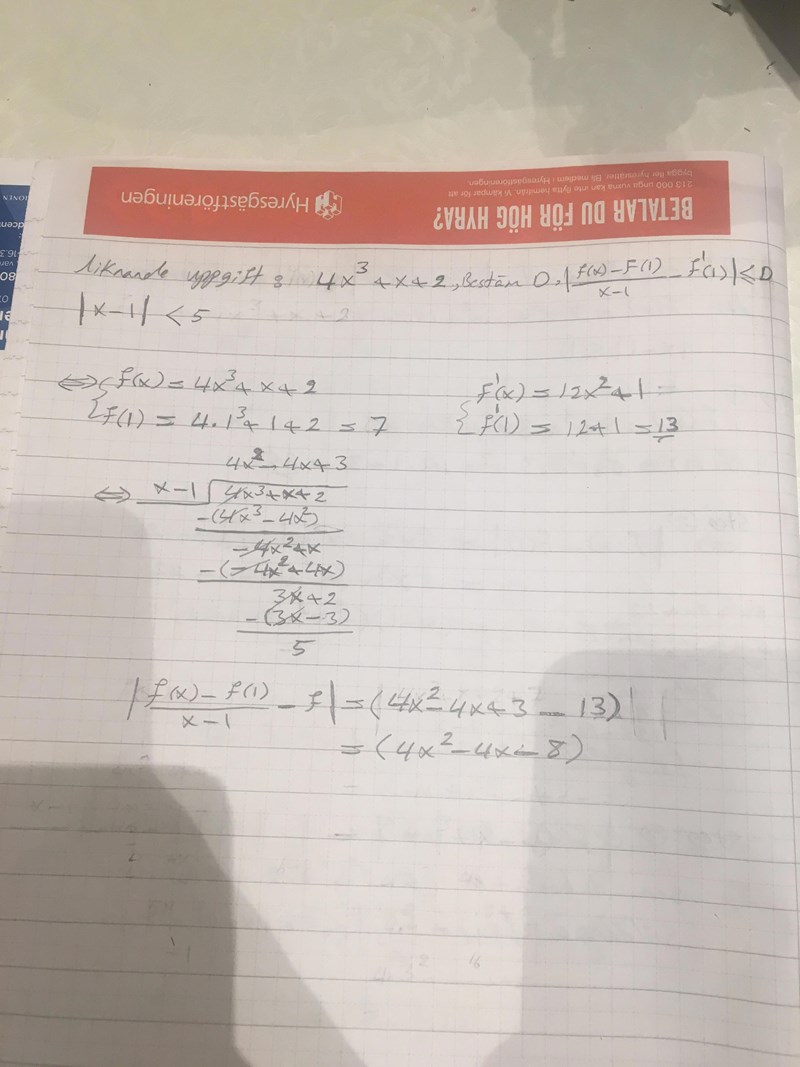 BETALAR DU FÖR HÖG HYRA?
213 000 unga vuxna kan inte flytta hemifrån. Vi kämpar för att
bygga fler hyresrätter. Bli medlem i Hyresgästföreningen.
Hyresgästföreningen
liknande uppgift: 4x³+x+2, Bestäm D, |f(x)-F(1)/x-1 - f'(1)| ≤ D
|x-1| < 5
⇔ { f(x) = 4x³+x+2
f(1) = 4.1³+1+2 = 7
{ f'(x) = 12x²+1
f'(1) = 12+1 = 13
4x²-4x+3
⇔ x-1 | 4x³+x+2
-(4x³-4x²)
-4x²+x
-(-4x²+4x)
3x+2
-(3x-3)
5
|f(x)-f(1)/x-1 - f| = (4x²-4x+3-13)
= (4x²-4x-8)